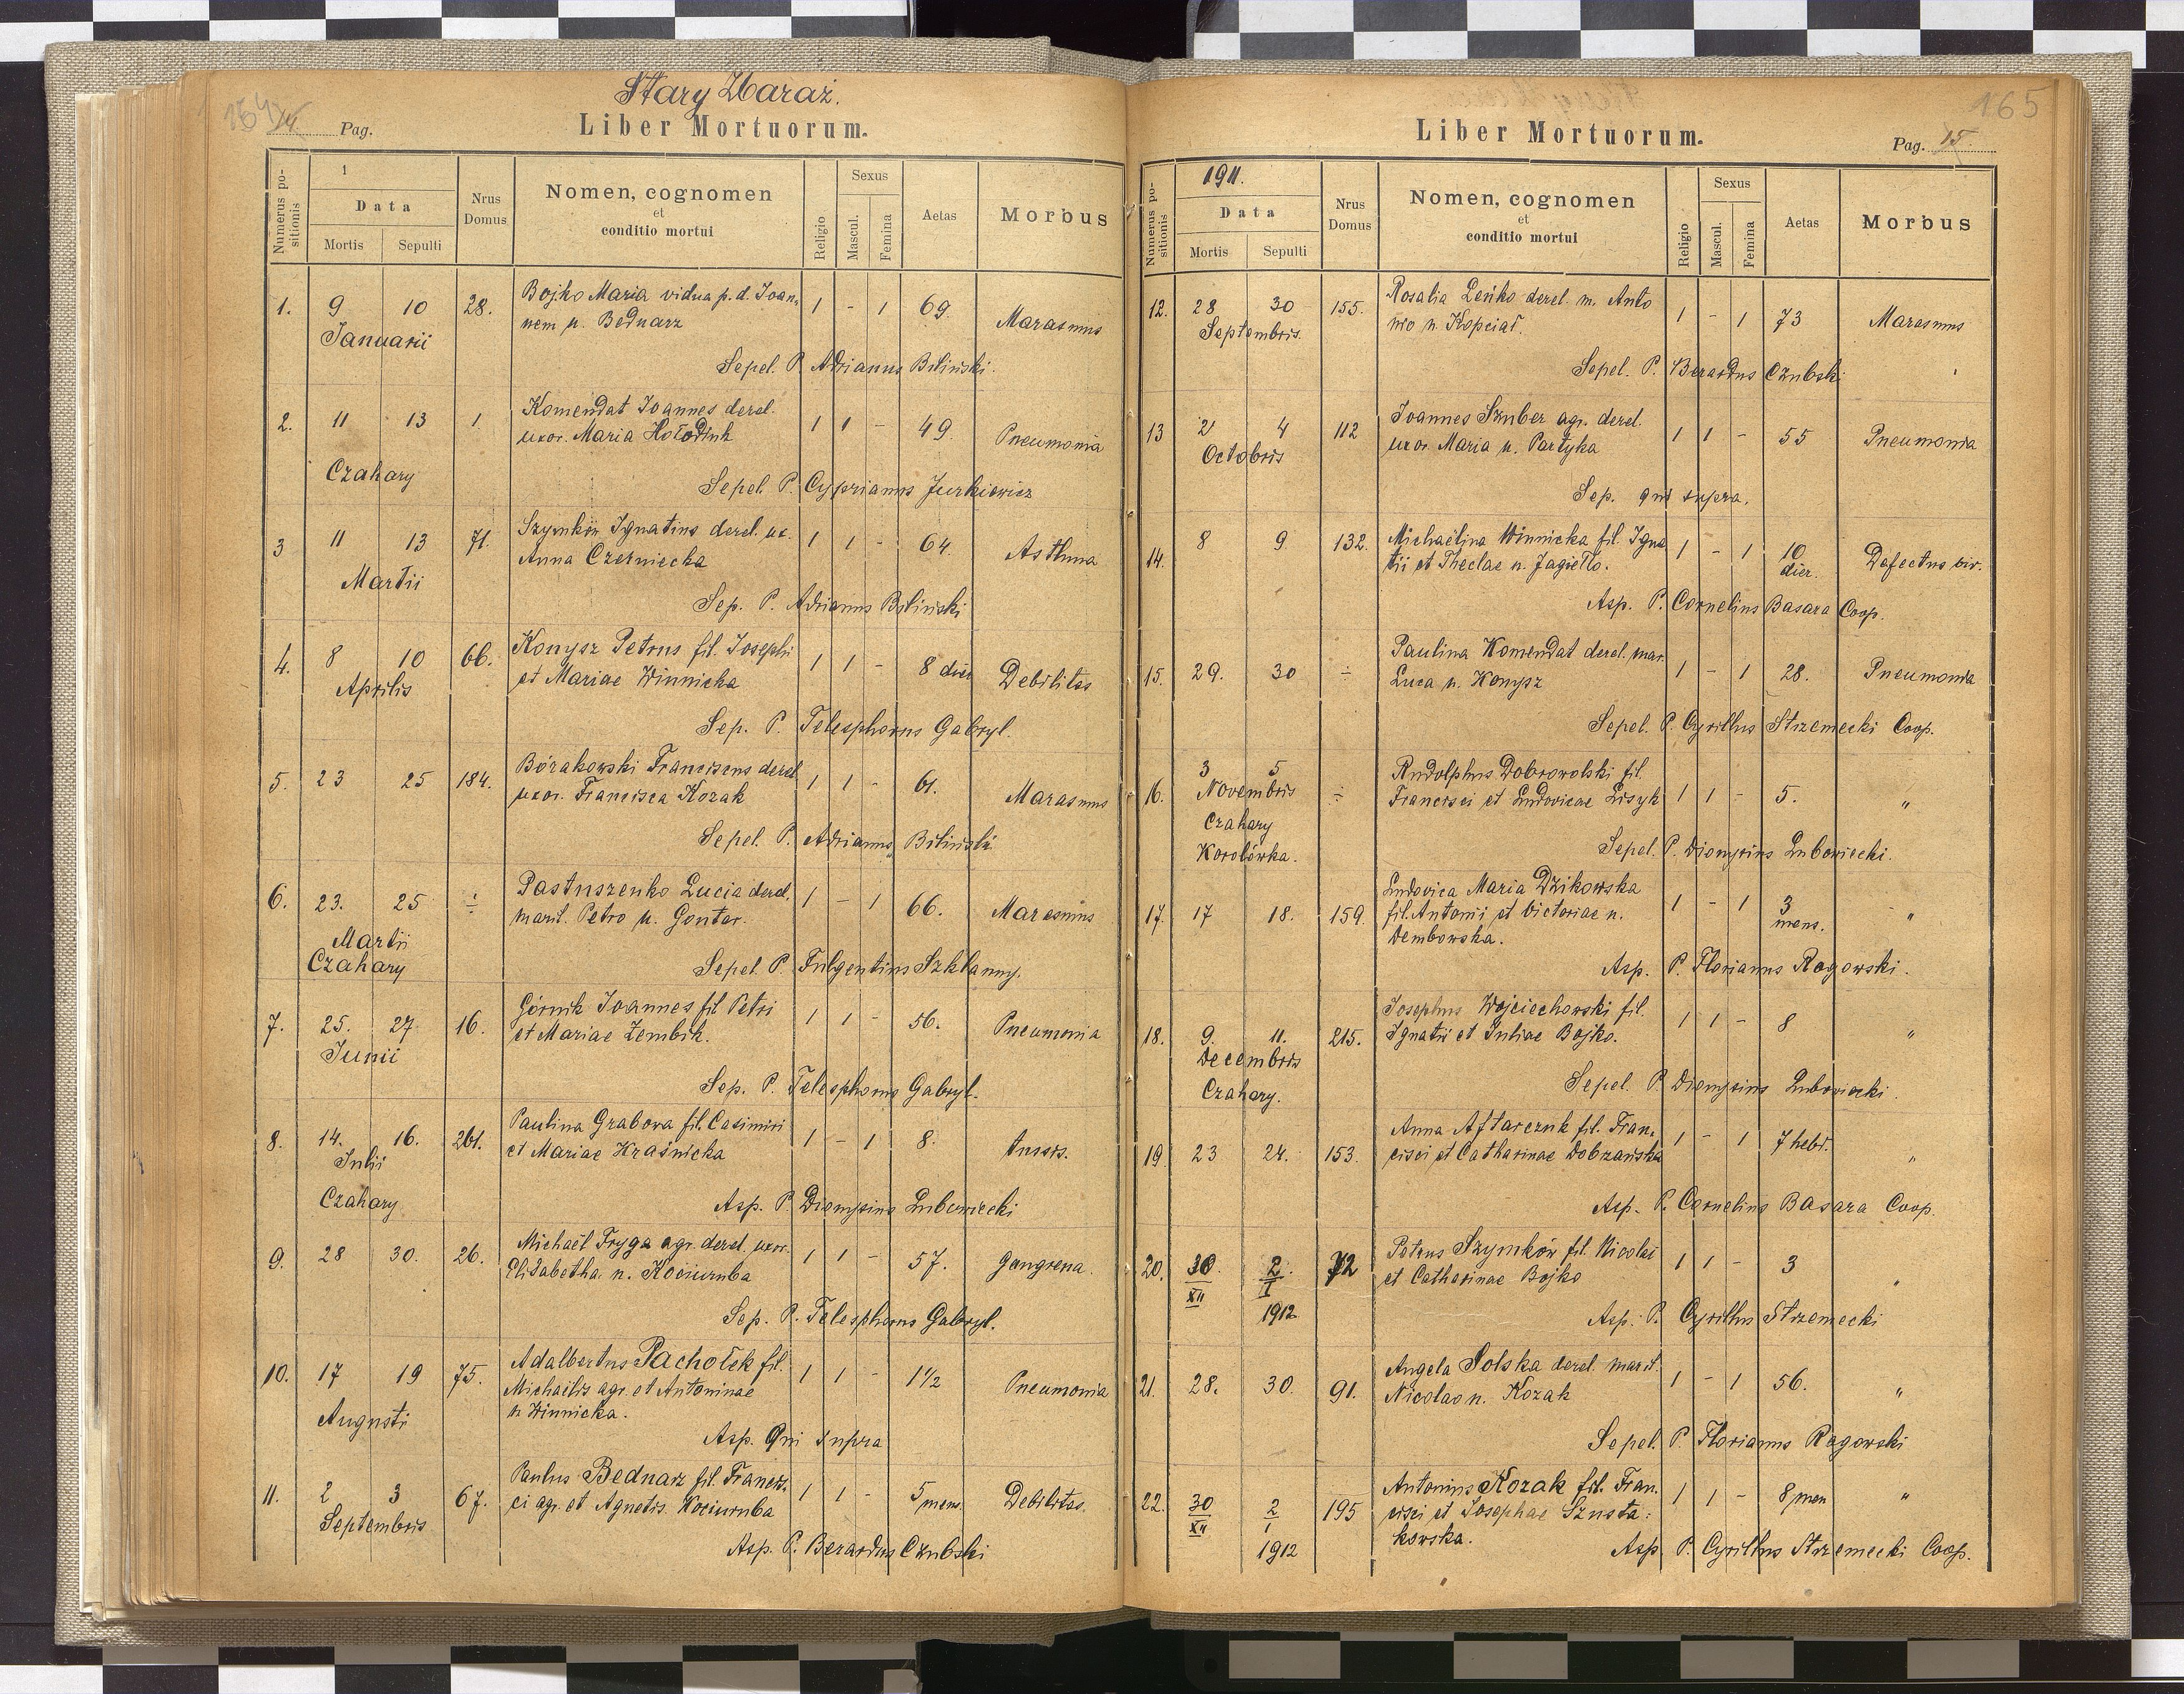 Stary Zbaraż.
164
14
Pag.
Liber Mortuorum.
Numerus positionis
1
Data
Mortis Sepulti
Nrus Domus
Nomen, cognomen
et
conditio mortui
Religio
Sexus
Mascul. Femina
Aetas
Morbus
1. 9 10 28. Bojko Maria vidua p. d. Joan- 1 - 1 69. Marasmus
nem n. Bednarz
Januarii
Sepel. P. Adrianus Biliński.
2. 11 13 1. Komendat Joannes derel. 1 1 - 49. Pneumonia
uxor. Maria Hołodiuk
Czahary
Sepel. P. Cyprianus Jurkiewicz
3 11 13 71. Szymków Ignatius derel. ux. 1 1 - 64. Asthma
Anna Czerniecka
Martii
Sep. P. Adrianus Biliński
4. 8 10 66. Konysz Petrus fil. Josephi 1 1 - 8 dier Debilitas
et Mariae Winnicka
Aprilis
Sep. P. Telesphorus Gabryl.
5. 23 25 184. Bórakowski Franciscus derel 1 1 - 61. Marasmus
uxor. Francisca Kozak
Sepel. P. Adrianus Biliński
6. 23. 25 ÷ Pastuszenko Lucia derel. 1 - 1 66. Marasmus
marit. Petro n. Gontar.
Martii
Czahary
Sepel. P. Fulgentius Szklanny.
7. 25. 27. 16. Górnik Joannes fil Petri 1 1 - 56. Pneumonia
et Mariae Zembik.
Junii
Sep. P. Telesphorus Gabryl.
8. 14. 16. 261. Paulina Grabova fil. Casimiri 1 - 1 8. tussis.
et Mariae Kraśnicka
Julii
Czahary
Asp. P. Dionysius Lubowiecki
9. 28 30. 26. Michaël Fryga agr. derel. uxor. 1 1 - 57. gangrena
Elisabetha n. Kociumba
Sep. P. Telesphorus Gabryl.
10. 17 19 75. Adalbertus Pachołek fil. 1 1 - 1 1/2 Pneumonia
Michaëlis agr. et Antoninae
n Winnicka.
Augusti
Asp. Qui supra
11. 2 3 67. Paulus Bednarz fil. Francis- 1 1 - 5 mens. Debilitas
ci agr. et Agnetis Kociumba
Septembris
Asp. P. Berardus Czubski
165
Liber Mortuorum.
Pag. 15
Numerus positionis
1911.
Data
Mortis Sepulti
Nrus Domus
Nomen, cognomen
et
conditio mortui
Religio
Sexus
Mascul. Femina
Aetas
Morbus
12. 28 30 155. Rosalia Leńko derel. m. Anto 1 - 1 73 Marasmus
nio n. Kopciał.
Septembris.
Sepel. P. Berardus Czubski
13 2 4 112 Joannes Sznber agr. derel. 1 1 - 55 Pneumonia
uxor. Maria n. Partyka
Octobris
Sep. qui supra.
14. 8 9 132. Michaëlina Winnicka fil. Igna 1 - 1 10 dier. Defectus vir.
tii et Theclae n. Jagiełło.
Asp. P. Cornelius Basara Coop.
15. 29. 30 ÷ Paulina Komendat derel. mar. 1 - 1 28. Pneumonia
Luca n. Konysz
Sepel. P. Cyrillus Strzemecki Coop.
16. 3 5 ÷ Rudolphus Dobrowolski fil. 1 1 - 5. "
Francisci et Ludovicae Lisyk
Novembris
Czahary
Korolówka.
Sepel. P. Dionysius Lubowiecki.
17. 17 18. 159. Ludovica Maria Dzikowska 1 - 1 3 mens. "
fil. Antonii et Victoriae n.
Dembowska.
Asp. P. Florianus Rogowski.
18. 9. 11. 215. Josephus Wojciechowski fil. 1 1 - 8 "
Ignatii et Juliae Bojko.
Decembris
Czahary.
Sepel. P. Dionysius Lubowiecki.
19. 23 24. 153. Anna Aftarczuk fil. Fran- 1 - 1 7 hebd. "
cisci et Catharinae Dobrzańska
Asp. P. Cornelius Basara Coop.
20. 30/XII 2/I 1912 72 Petrus Szymków fil. Nicolai 1 1 - 3 "
et Catharinae Bojko
Asp. P. Cyrillus Strzemecki
21. 28. 30. 91. Angela Solska derel. marit. 1 - 1 56. "
Nicolao n. Kozak
Sepel. P. Florianus Rogowski
22. 30/XII 2/I 1912 195 Antonius Kozak fil. Fran- 1 1 - 8 men "
cisci et Josephae Szusta:
kowska.
Asp. P. Cyrillus Strzemecki Coop.